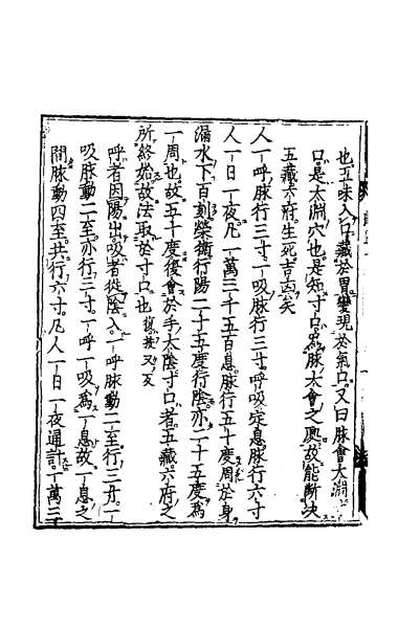 也五味入口藏於胃變現於氣口又曰脉會大淵
口是太淵穴也是知寸口爲脉大會之處故能斷决
五藏六府生死吉凶矣
人一呼脉行三寸一吸脉行三寸呼吸定息脉行六寸
人一日一夜凡一萬三千五百息脉行五十度周於身
漏水下百刻榮衛行陽二十五度行陰亦二十五度爲
一周也故五十度後會於手太陰寸口者五藏六府之
所終始故法取於寸口也
呼者因陽出吸者從陰入一呼脉動二至行三寸一
吸脉動二至亦行三寸一呼一吸爲一息故一息之
間脉動四至共行六寸凡人一日一夜通計一萬三千